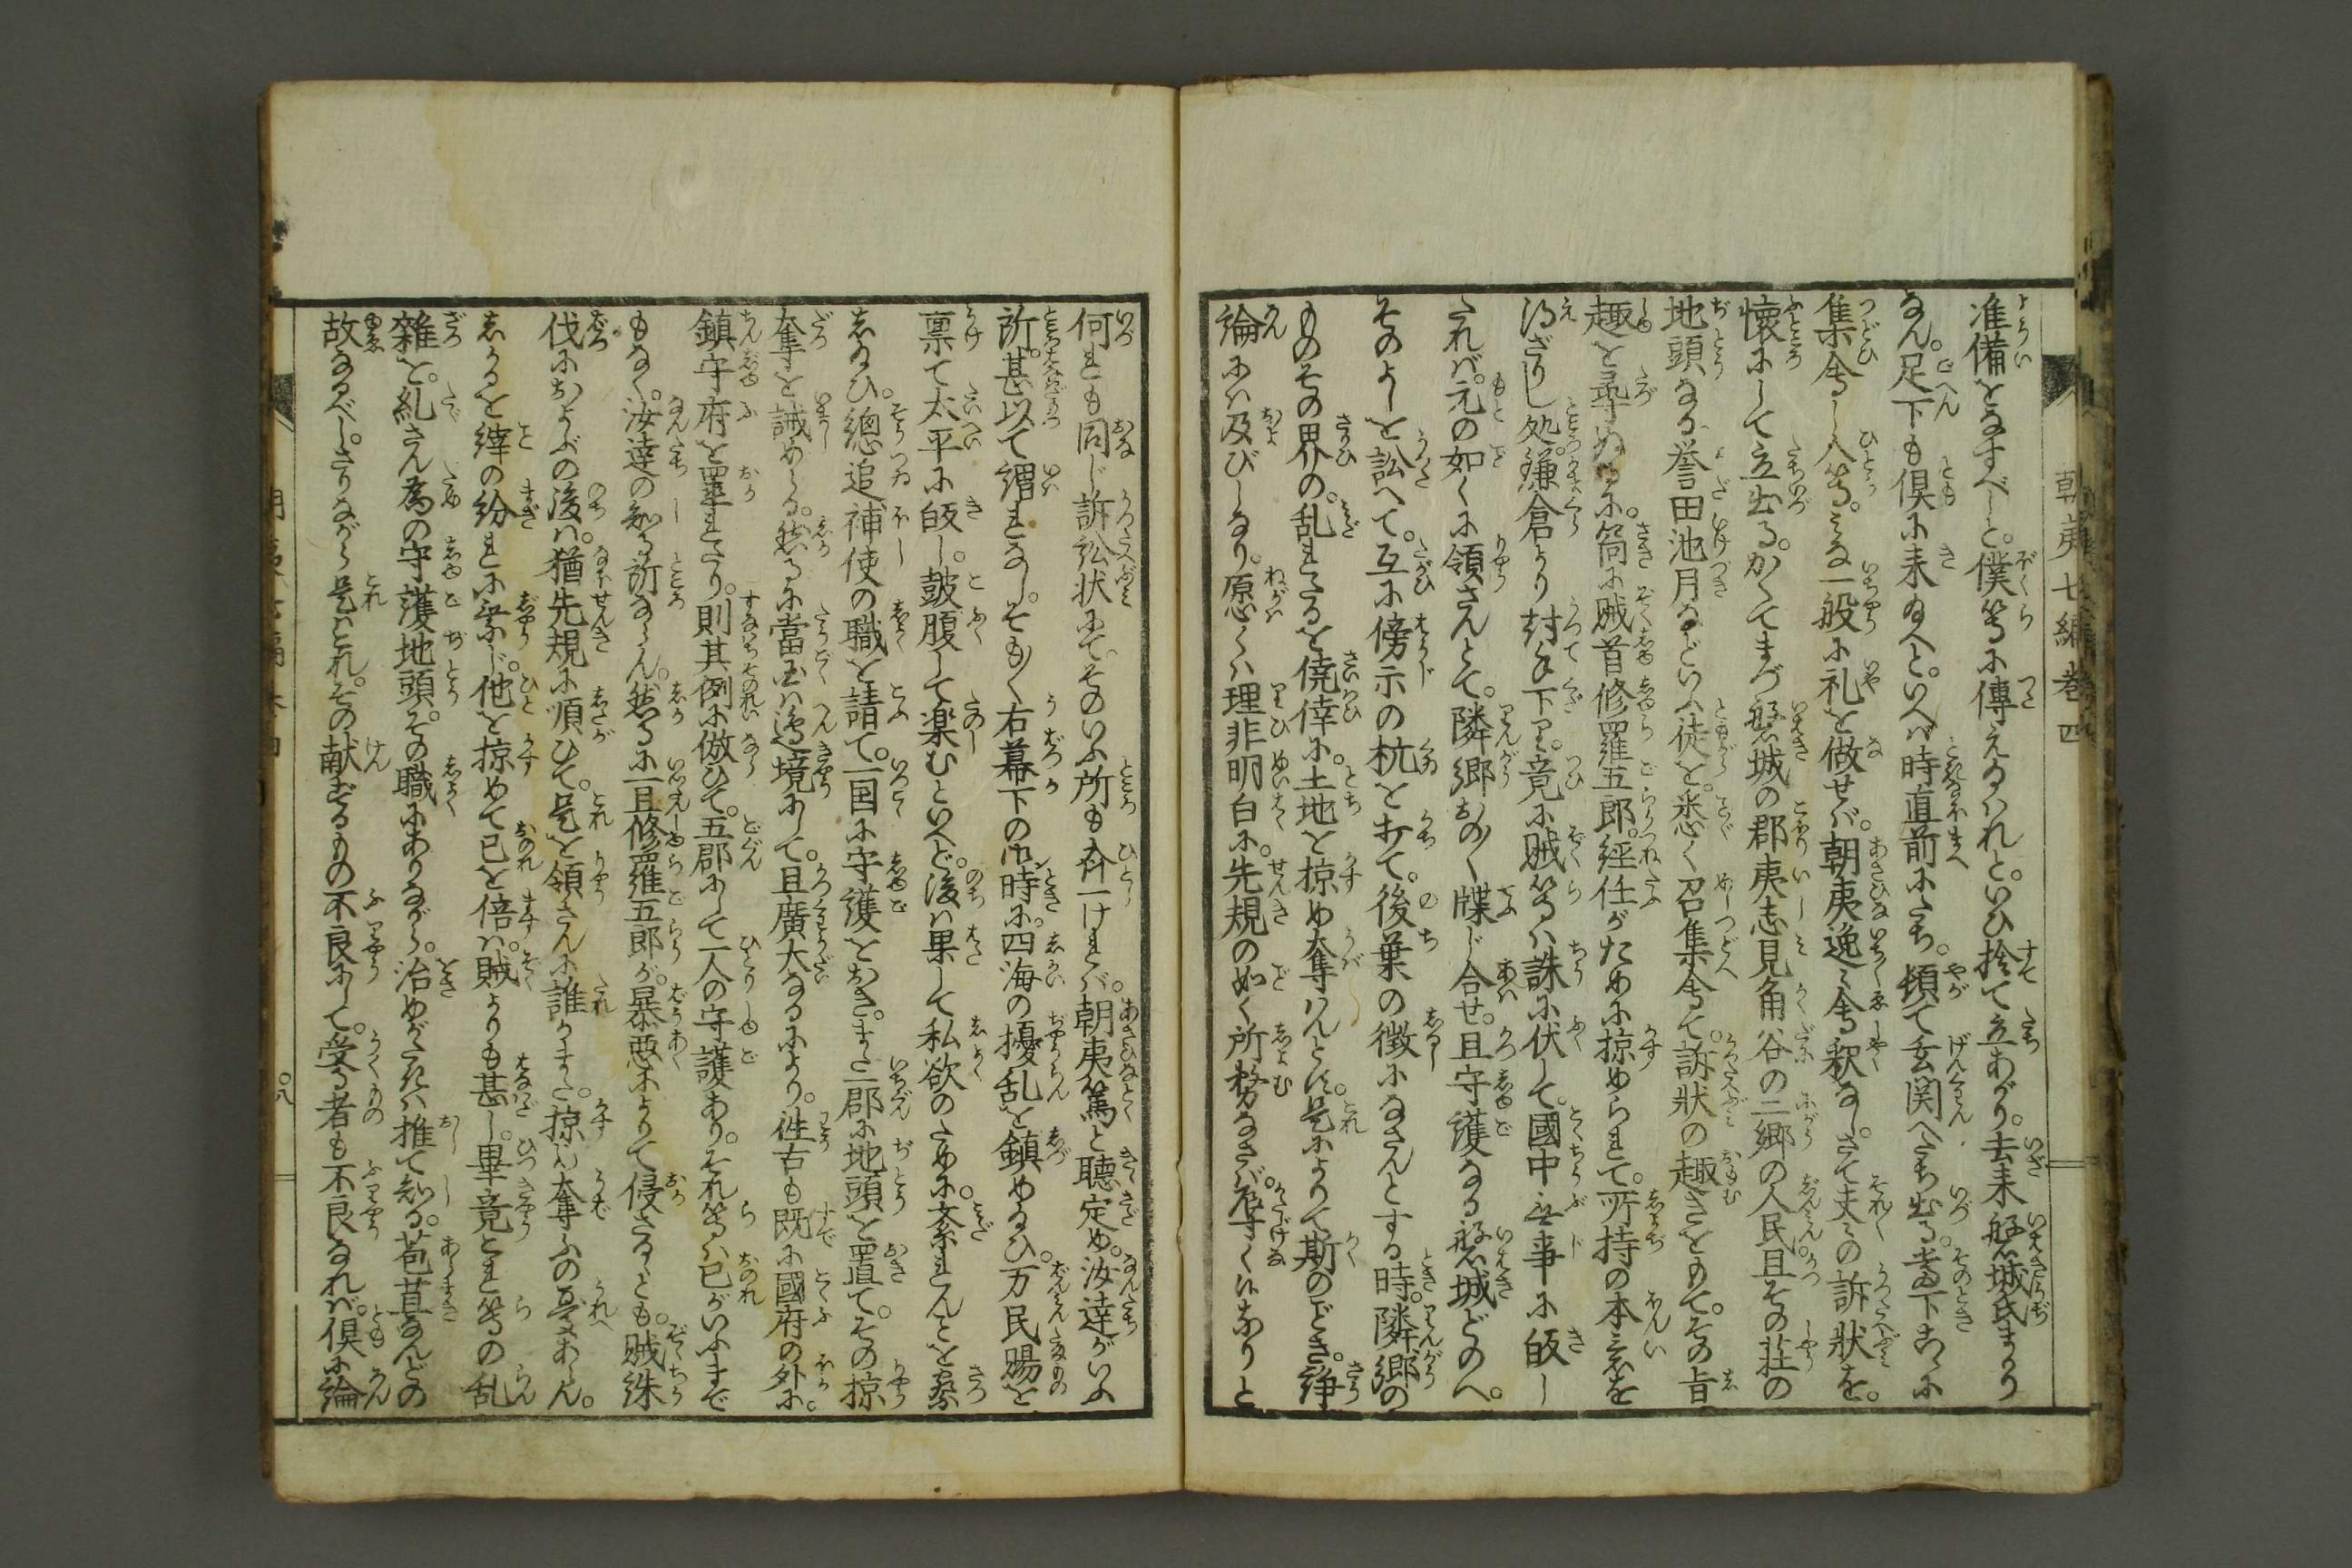 朝夷七編巻四
准備をなすべしと。僕等に傳えたれと。いひ捨て立あがり。去来磐城氏まゐり
なん。足下も倶に来ゐへと。いへば時直前にたち。頓て玄関へたち出る。當下こゝに
集會し人等。みな一般に礼を做せば。朝夷逸々會釈なし。さて夫々の訴状を。
懐にして立出る。かくてまづ磐城の郡夷志見角谷の二郷の人民。且その荘の
地頭なる誉田池月などいふ徒を。悉く召集會て。訴状の趣きをもて。その旨
趣を尋ぬるに。筒に賊首修羅五郎。経任がために掠められて。所持の本意を
得ざりし処。鎌倉より討手下り。竟に賊等は誅に伏して。國中無事に皈し
たれば。元の如くに領さんとて。隣郷おの〳〵牒じ合せ。且守護なる磐城どのへ。
そのよしを訟へて。互に傍示の杭を打て。後葉の徴になさんとする時。隣郷の
ものその界の。乱れたるを僥倖に。土地を掠め奪はんとす。是によりて斯のごとき。諍
論には及びしなり。原くは理非明白に。先規の如く所務なさば。忝くはなりと
何れも同じ訴訟状にて。そのいふ所も合一ければ。朝夷篤と聴定め。汝達がいふ
所。甚以て謂れなし。そも〳〵右幕下の御時に。四海の擾乱を鎮めたるひ。万民賜を
禀て太平に皈し。皷腹して楽むといへど。後は果して私欲のために。紊れんとを察
しゐひ。總追補使の職を請て。一国に守護をおき。また一郡に地頭を置て。その掠
奪を誡めらる。然るに當国は邊境にして。且廣大なるにより。徃古も既に國府の外に。
鎮守府を置れたり。則其例に倣ひて。五郡にして一人の守護あり。それ等は已がいふまで
もなく。汝達の知る所ならん。然るに一旦修羅五郎が。暴悪によりて侵さるゝとも。賊誅
伐におよぶの後は。猶先規に順ひて。是を領さんに誰かまた。掠め奪ふの憂あらん。
しかるを縡の紛れに乗じ。他を掠めて已を倍は。賊よりも甚し。畢竟これ等の乱
雑を。糺さん為の守護地頭。その職にありながら。治めがたきは推て知る。苞苴なんどの
故なるべし。さりながら是はこれ。その献ずるもの不良にして。受る者も不良なれば。倶に論
朝夷七編巻四
〇八